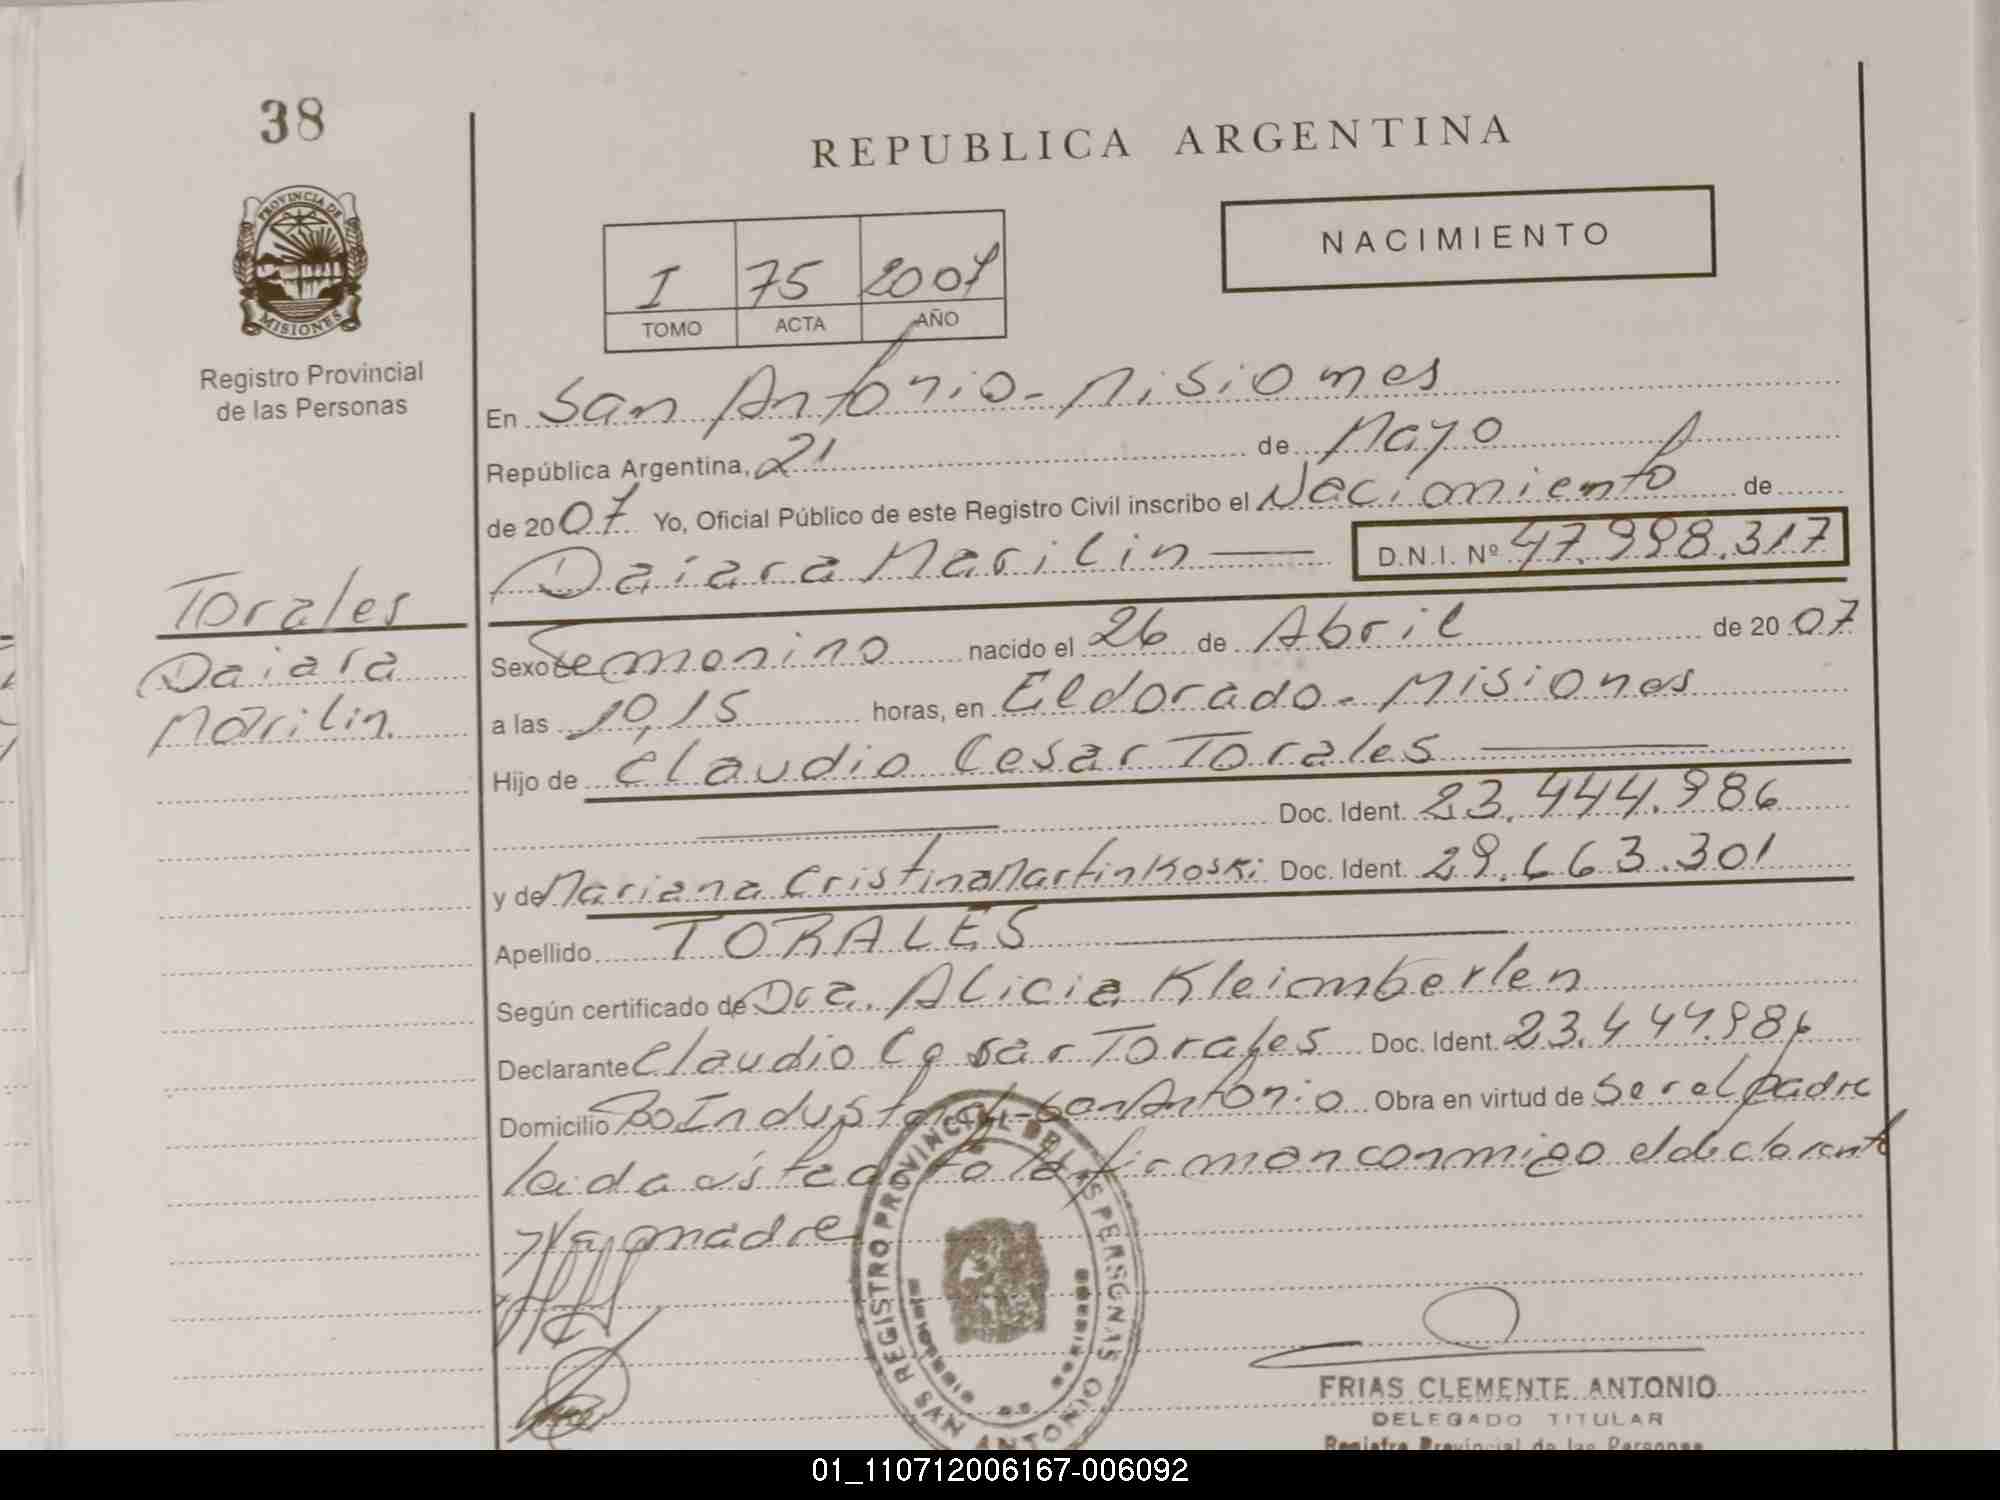 38
PROVINCIA DE
MISIONES
Registro Provincial
de las Personas
Torales
Daiara
Marilin.
REPUBLICA ARGENTINA
NACIMIENTO
I 75 2007
TOMO ACTA AÑO
En San Antonio - Misiones
República Argentina, 21 de Mayo
de 2007 Yo, Oficial Público de este Registro Civil inscribo el Nacimiento de
Daiara Marilin D.N.I. Nº 47.998.317
Sexo Femenino nacido el 26 de Abril de 2007
a las 10,15 horas, en Eldorado - Misiones
Hijo de Claudio Cesar Torales
Doc. Ident. 23.444.986
y de Mariana Cristina Martinkoski Doc. Ident. 29.663.301
Apellido TORALES
Según certificado de Dra. Alicia Kleimberlen
Declarante Claudio Cesar Torales Doc. Ident. 23.444.986
Domicilio Bo Industrial - San Antonio Obra en virtud de ser el padre
leida esta acta la firman conmigo el declarante
y la madre
REGISTRO PROVINCIAL DE LAS PERSONAS
SAN ANTONIO
FRIAS CLEMENTE ANTONIO
DELEGADO TITULAR
Registro Provincial de las Personas
01_110712006167-006092